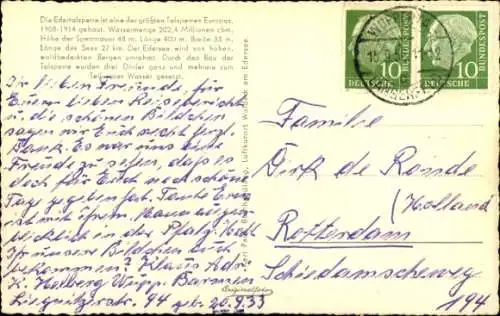 Die Edertalsperre ist eine der größten Talsperren Europas.
1908-1914 gebaut. Wassermenge 202,4 Millionen cbm.
Höhe der Sperrmauer 48 m. Länge 400 m. Breite 35 m.
Länge des Sees 27 km. Der Edersee wird von hohen,
waldbedeckten Bergen umrahmt. Durch den Bau der
Talsperre wurden drei Dörfer ganz und mehrere zum
Teil unter Wasser gesetzt.
Ihr lieben Freunde, für
Euren lieben Reisebericht
u. die schönen Bildchen
sagen wir Euch recht herzl.
Dank. Es war uns eine
Freude zu sehen, daß es
doch für Euch noch schöne
Tage gegeben hat. Tante Erna
ist mit ihrem Mann augen-
blicklich in der Pfalz.
Ihr unsere Bildchen auch
bekommen? Klaus Adr.
K. Helberg Wupp. Barmen
Liegnitzerstr. 94 geb. 20.9.33
Originalfoto
Luftkurort Waldeck am Edersee
10 DEUTSCHE BUNDESPOST
DEUTSCHE BUNDESPOST 10
Familie
Dirk de Ronde
(Holland
Rotterdam
Schiedamscheweg
194